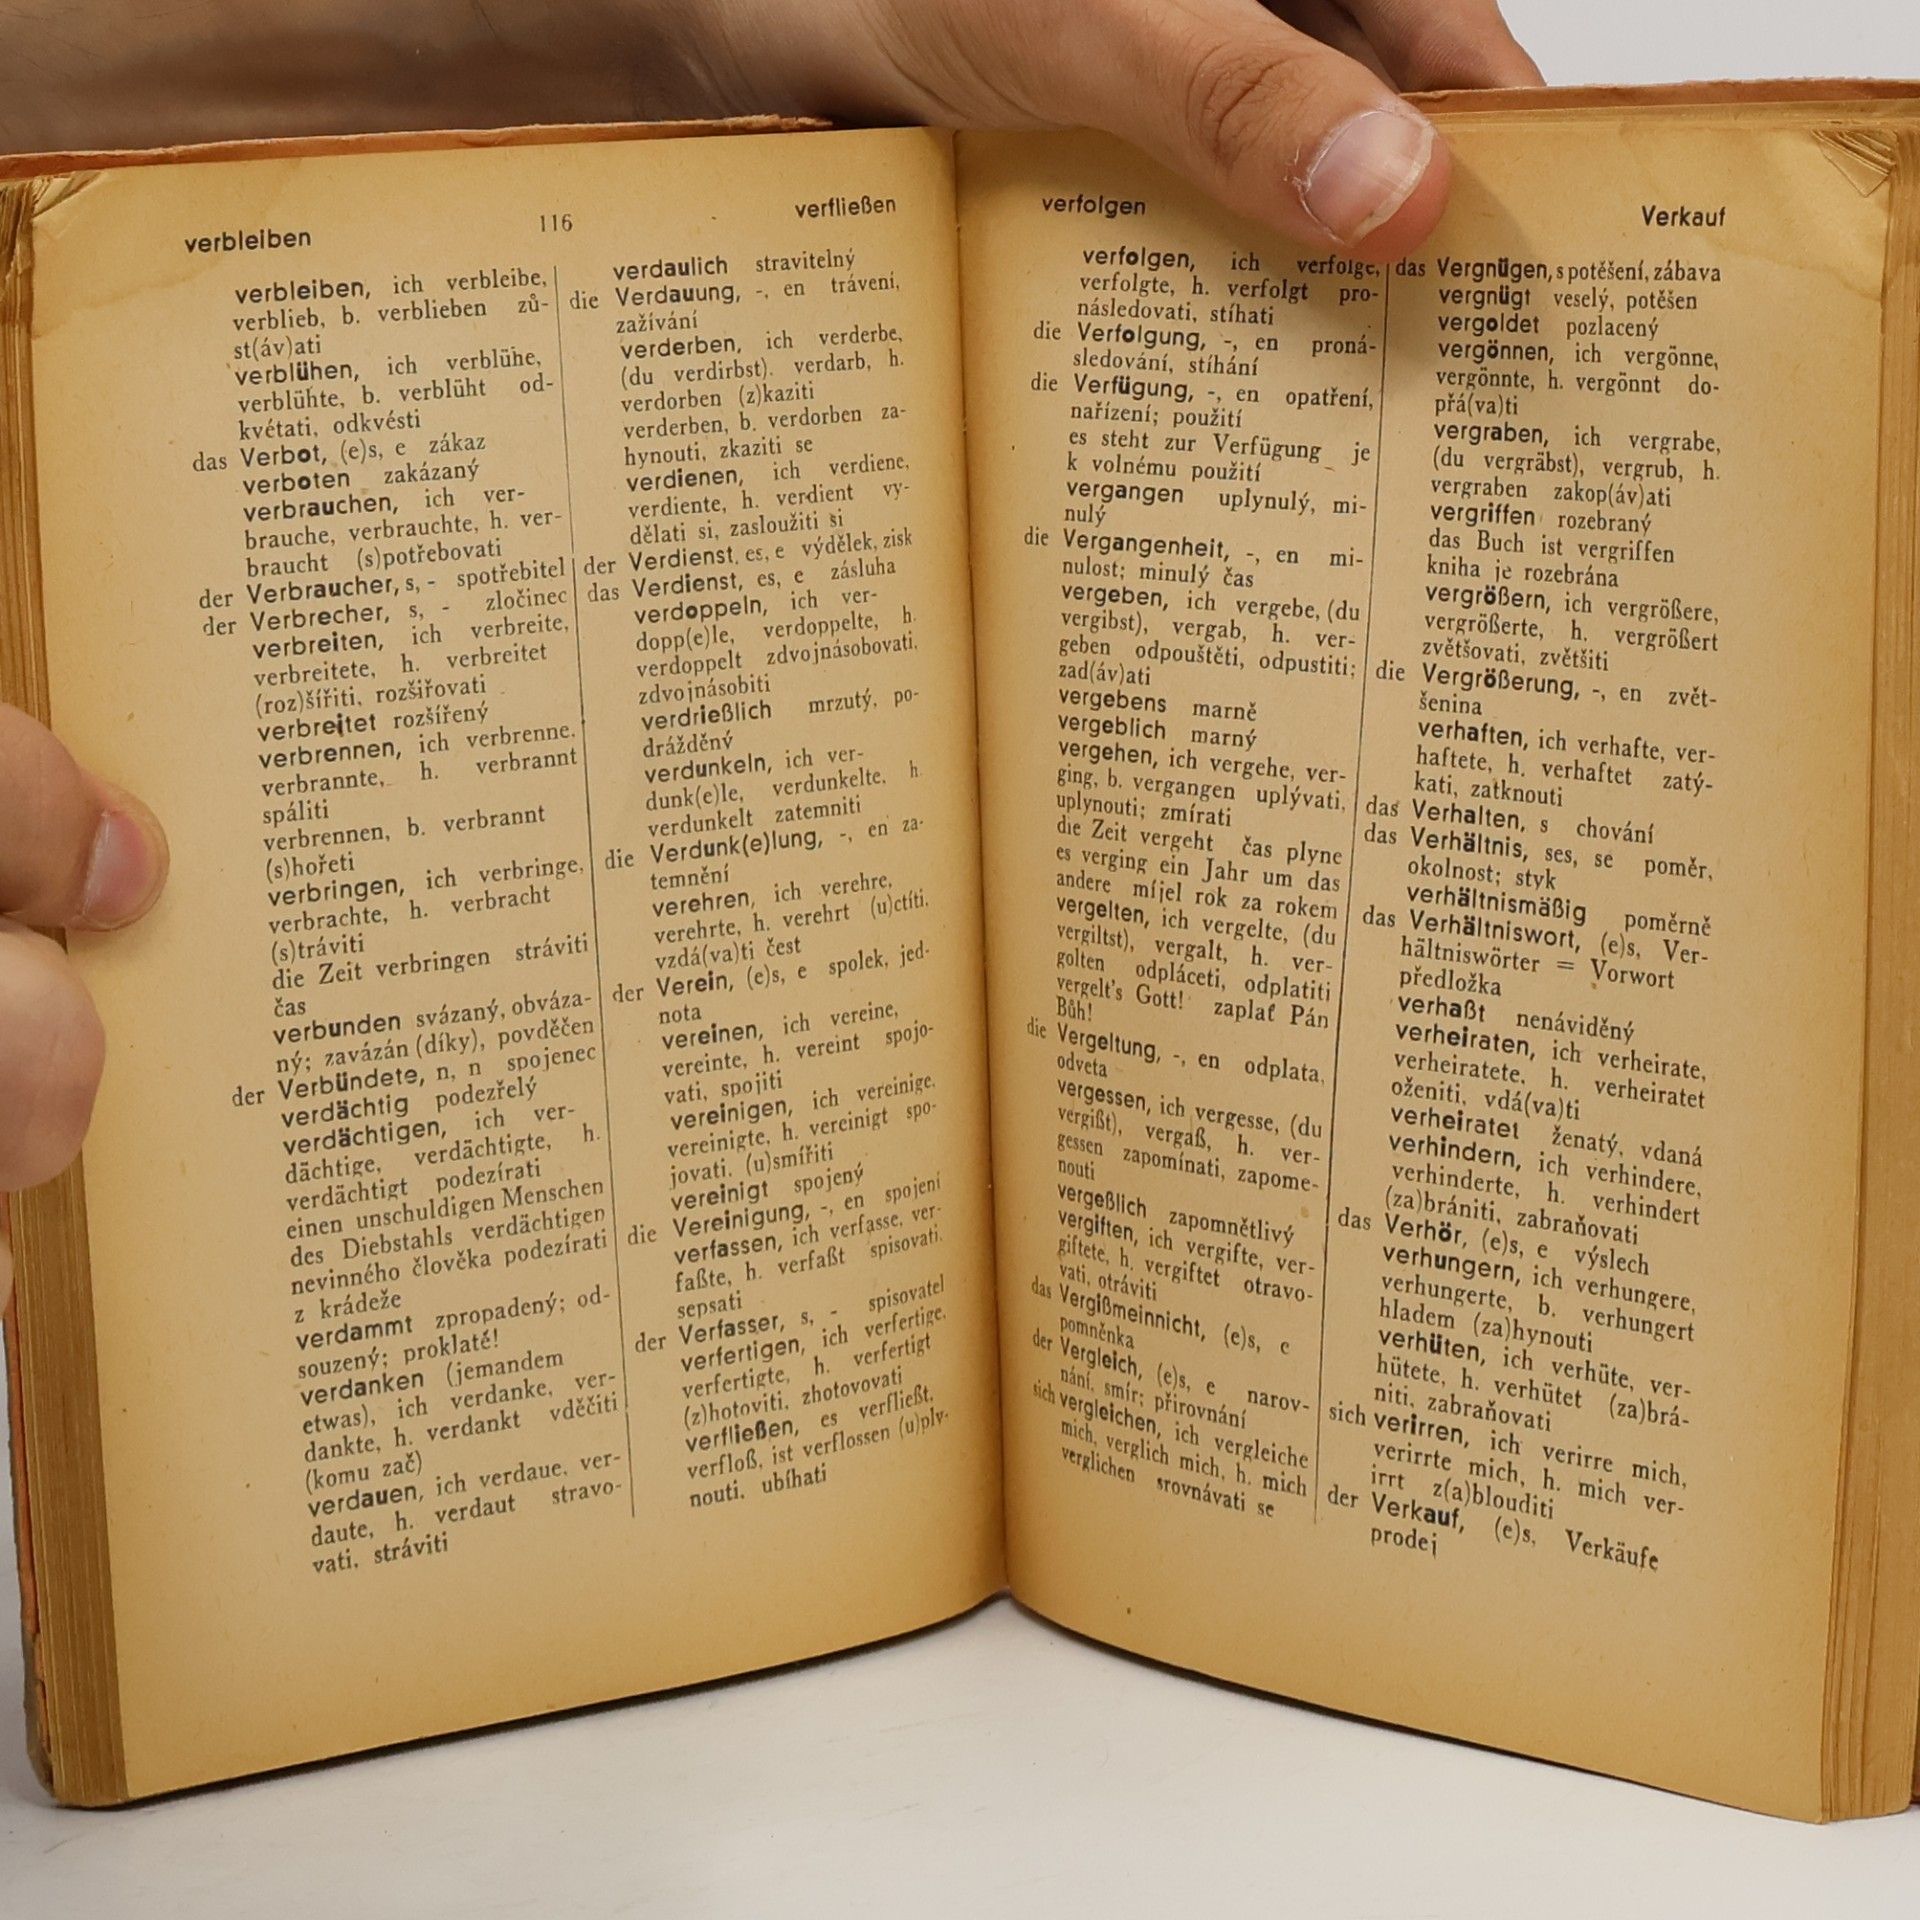 verbleiben
116
verfließen
verbleiben, ich verbleibe,
verblieb, b. verblieben zů-
st(áv)ati
verblühen, ich verblühe,
verblühte, b. verblüht od-
květati, odkvésti
das Verbot, (e)s, e zákaz
verboten zakázaný
verbrauchen, ich ver-
brauche, verbrauchte, h. ver-
braucht (s)potřebovati
der Verbraucher, s, - spotřebitel
der Verbrecher, s, - zločinec
verbreiten, ich verbreite,
verbreitete, h. verbreitet
(roz)šířiti, rozšiřovati
verbreitet rozšířený
verbrennen, ich verbrenne,
verbrannte, h. verbrannt
spáliti
verbrennen, b. verbrannt
(s)hořeti
verbringen, ich verbringe,
verbrachte, h. verbracht
(s)tráviti
die Zeit verbringen stráviti
čas
verbunden svázaný, obváza-
ný; zavázán (díky), povděčen
der Verbündete, n, n spojenec
verdächtig podezřelý
verdächtigen, ich ver-
dächtige, verdächtigte, h.
verdächtigt podezírati
einen unschuldigen Menschen
des Diebstahls verdächtigen
nevinného člověka podezírati
z krádeže
verdammt zpropadený; od-
souzený; proklatě!
verdanken (jemandem
etwas), ich verdanke, ver-
dankte, h. verdankt vděčiti
(komu zač)
verdauen, ich verdaue, ver-
daute, h. verdaut stravo-
vati, stráviti
verdaulich stravitelný
die Verdauung, -, en trávení,
zažívání
verderben, ich verderbe,
(du verdirbst), verdarb, h.
verdorben (z)kaziti
verderben, b. verdorben za-
hynouti, zkaziti se
verdienen, ich verdiene,
verdiente, h. verdient vy-
dělati si, zasloužiti si
der Verdienst, es, e výdělek, zisk
das Verdienst, es, e zásluha
verdoppeln, ich ver-
dopp(e)le, verdoppelte, h.
verdoppelt zdvojnásobovati,
zdvojnásobiti
verdrießlich mrzutý, po-
drážděný
verdunkeln, ich ver-
dunk(e)le, verdunkelte, h.
verdunkelt zatemniti
die Verdunk(e)lung, -, en za-
temnění
verehren, ich verehre,
verehrte, h. verehrt (u)ctíti,
vzdá(va)ti čest
der Verein, (e)s, e spolek, jed-
nota
vereinen, ich vereine,
vereinte, h. vereint spojo-
vati, spojiti
vereinigen, ich vereinige,
vereinigte, h. vereinigt spo-
jovati, (u)smířiti
vereinigt spojený
die Vereinigung, -, en spojení
verfassen, ich verfasse, ver-
faßte, h. verfaßt spisovati,
sepsati
der Verfasser, s, - spisovatel
verfertigen, ich verfertige,
verfertigte, h. verfertigt
(z)hotoviti, zhotovovati
verfließen, es verfließt,
verfloß, ist verflossen (u)ply-
nouti, ubíhati
verfolgen
Verkauf
verfolgen, ich verfolge,
verfolgte, h. verfolgt pro-
následovati, stíhati
die Verfolgung, -, en proná-
sledování, stíhání
die Verfügung, -, en opatření,
nařízení; použití
es steht zur Verfügung je
k volnému použití
vergangen uplynulý, mi-
nulý
die Vergangenheit, -, en mi-
nulost; minulý čas
vergeben, ich vergebe, (du
vergibst), vergab, h. ver-
geben odpouštěti, odpustiti;
zad(áv)ati
vergebens marně
vergeblich marný
vergehen, ich vergehe, ver-
ging, b. vergangen uplývati,
uplynouti; zmírati
die Zeit vergeht čas plyne
es verging ein Jahr um das
andere míjel rok za rokem
vergelten, ich vergelte, (du
vergiltst), vergalt, h. ver-
golten odpláceti, odplatiti
vergelt's Gott! zaplať Pán
Bůh!
die Vergeltung, -, en odplata,
odveta
vergessen, ich vergesse, (du
vergißt), vergaß, h. ver-
gessen zapomínati, zapome-
nouti
vergeßlich zapomnětlivý
vergiften, ich vergifte, ver-
giftete, h. vergiftet otravo-
vati, otráviti
das Vergißmeinnicht, (e)s, e
pomněnka
der Vergleich, (e)s, e narov-
nání, smír; přirovnání
sich vergleichen, ich vergleiche
mich, verglich mich, h. mich
verglichen srovnávati se
das Vergnügen, s potěšení, zábava
vergnügt veselý, potěšen
vergoldet pozlacený
vergönnen, ich vergönne,
vergönnte, h. vergönnt do-
přá(va)ti
vergraben, ich vergrabe,
(du vergräbst), vergrub, h.
vergraben zakop(áv)ati
vergriffen rozebraný
das Buch ist vergriffen
kniha je rozebrána
vergrößern, ich vergrößere,
vergrößerte, h. vergrößert
zvětšovati, zvětšiti
die Vergrößerung, -, en zvět-
šenina
verhaften, ich verhafte, ver-
haftete, h. verhaftet zatý-
kati, zatknouti
das Verhalten, s chování
das Verhältnis, ses, se poměr,
okolnost; styk
verhältnismäßig poměrně
das Verhältniswort, (e)s, Ver-
hältniswörter = Vorwort
předložka
verhaßt nenáviděný
verheiraten, ich verheirate,
verheiratete, h. verheiratet
oženiti, vdá(va)ti
verheiratet ženatý, vdaná
verhindern, ich verhindere,
verhinderte, h. verhindert
(za)brániti, zabraňovati
das Verhör, (e)s, e výslech
verhungern, ich verhungere,
verhungerte, b. verhungert
hladem (za)hynouti
verhüten, ich verhüte, ver-
hütete, h. verhütet (za)brá-
niti, zabraňovati
sich verirren, ich verirre mich,
verirrte mich, h. mich ver-
irrt z(a)blouditi
der Verkauf, (e)s, Verkäufe
prodej